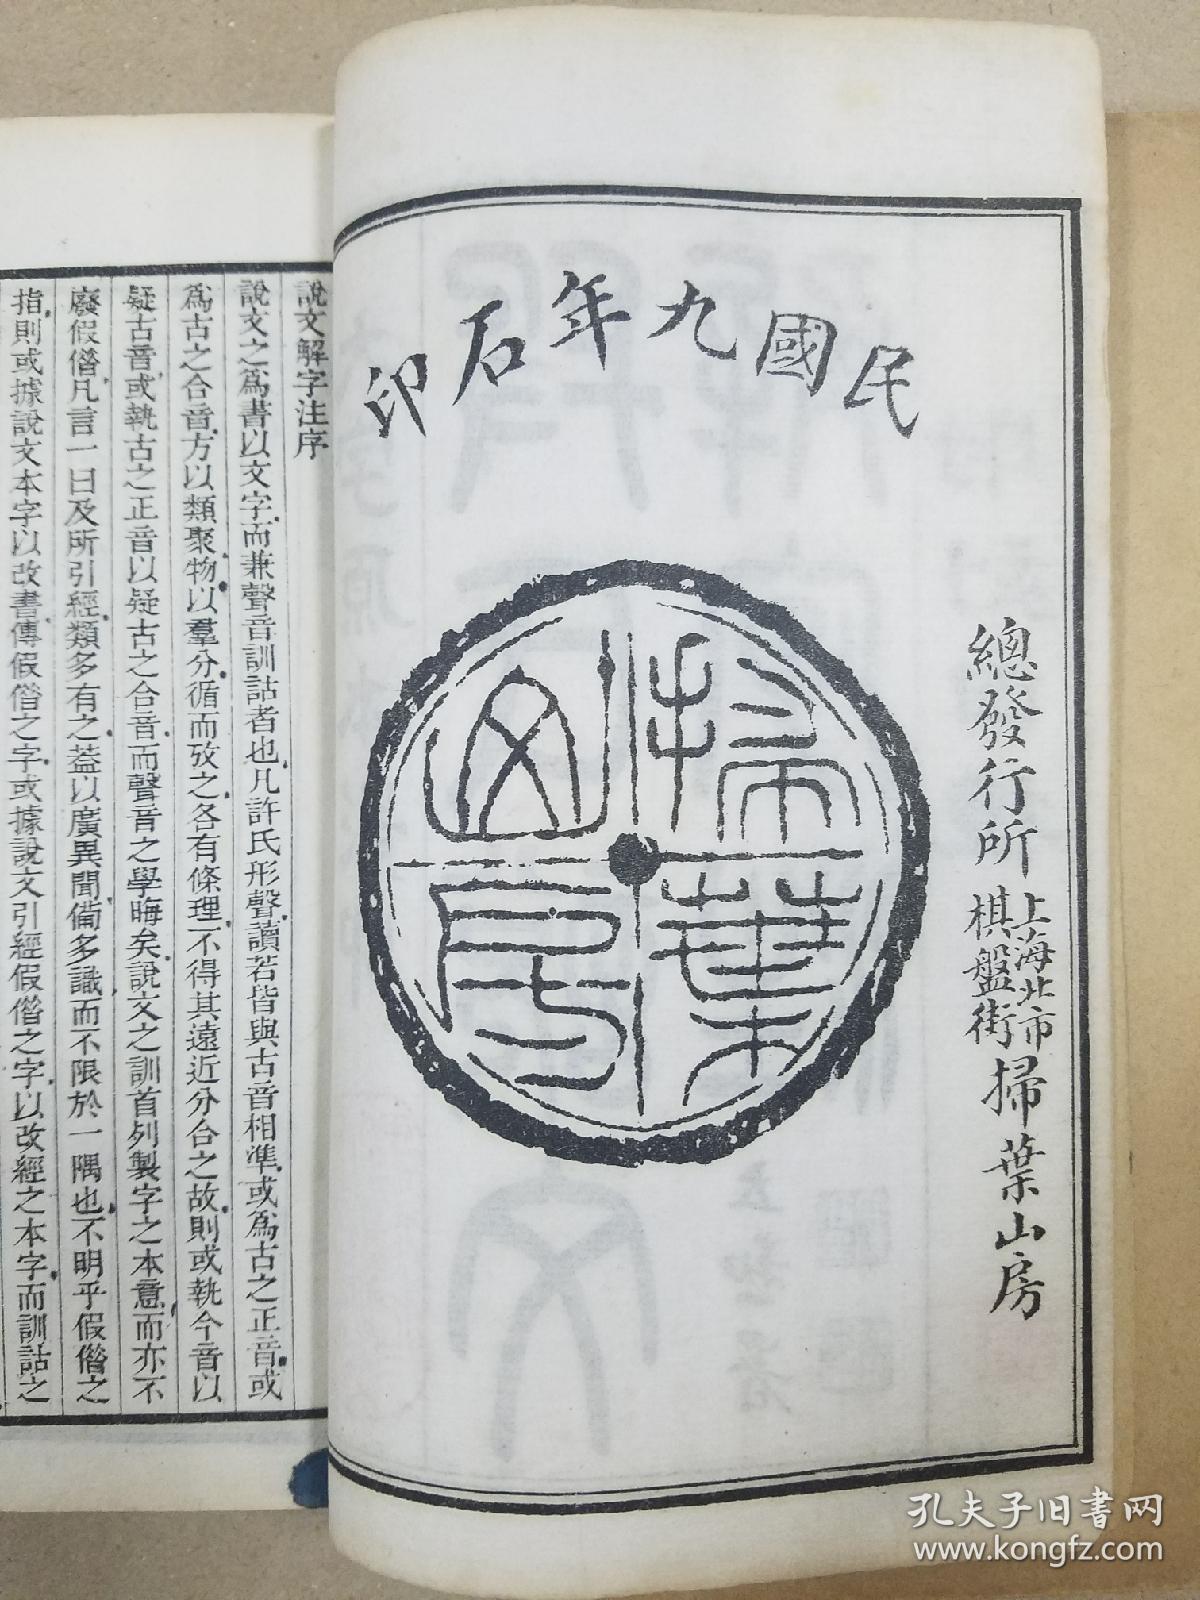 民國九年石印
掃葉山房
總發行所
上海北市
棋盤街
掃葉山房
說文解字注序
說文之爲書以文字而兼聲音訓詁者也凡許氏形聲讀若皆與古音相準或爲古之正音或
爲古之合音方以類聚物以羣分循而攷之各有條理不得其遠近分合之故則或執今音以
疑古音或執古之正音以疑古之合音而聲音之學晦矣說文之訓首列製字之本意而亦不
廢假借凡言一曰及所引經類多有之葢以廣異聞備多識而不限於一隅也不明乎假借之
指則或據說文本字以改書傳假借之字或據說文引經假借之字以改經之本字而訓詁之
孔夫子旧书网
www.kongfz.com